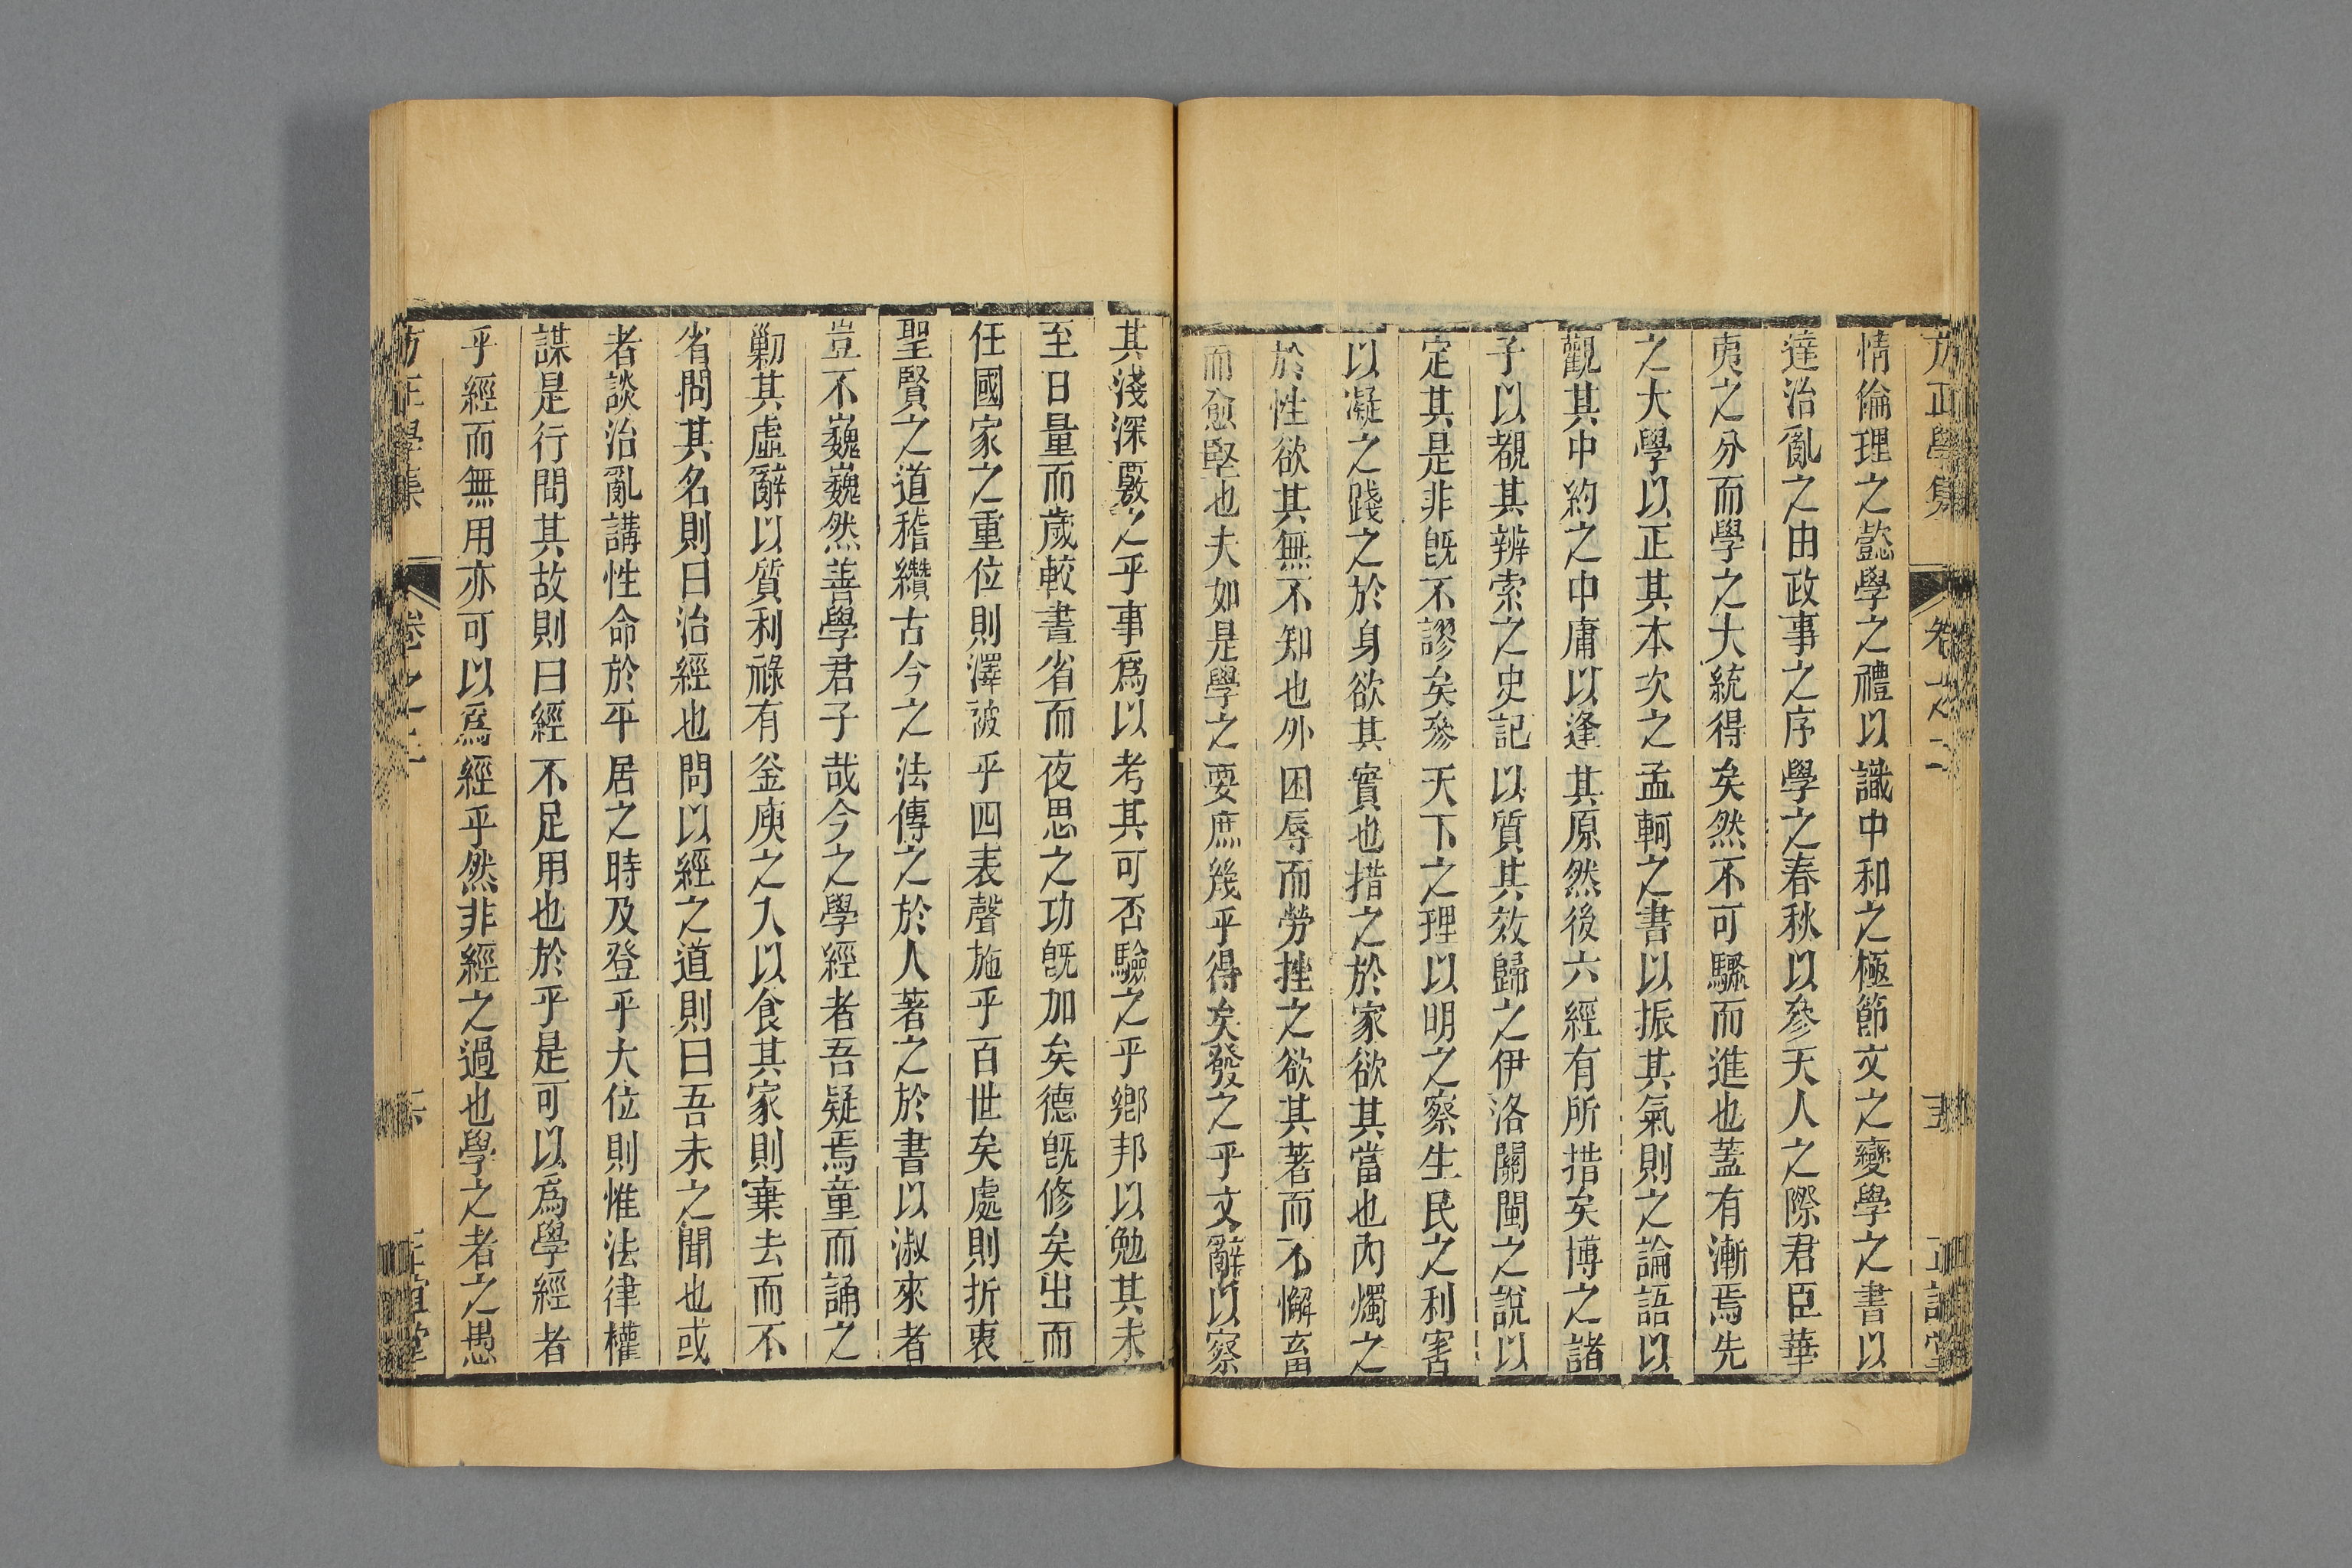 情倫理之懿學之禮以識中和之極節文之變學之書以
達治亂之由政事之序學之春秋以參天人之際君臣華
夷之分而學之大統得矣然不可驟而進也蓋有漸焉先
之大學以正其本次之孟軻之書以振其氣則之論語以
觀其中約之中庸以逢其原然後六經有所措矣博之諸
子以覩其辨索之史記以質其效歸之伊洛關閩之說以
定其是非旣不謬矣參天下之理以明之察生民之利害
以凝之踐之於身欲其實也措之於家欲其當也內燭之
於性欲其無不知也外困辱而勞挫之欲其著而不懈畜
而愈堅也夫如是學之要庶幾乎得矣發之乎文辭以察
其淺深覈之乎事爲以考其可否驗之乎鄉邦以勉其未
至日量而歲較晝省而夜思之功旣加矣德旣修矣出而
任國家之重位則澤被乎四表聲施乎百世矣處則折衷
聖賢之道稽纘古今之法傳之於人著之於書以淑來者
豈不巍巍然善學君子哉今之學經者吾疑焉童而誦之
勦其虛辭以質利祿有釜庾之入以食其家則棄去而不
省問其名則曰治經也問以經之道則曰吾未之聞也或
者談治亂講性命於平居之時及登乎大位則惟法律權
謀是行問其故則曰經不足用也於乎是可以爲學經者
乎經而無用亦可以爲經乎然非經之過也學之者之愚